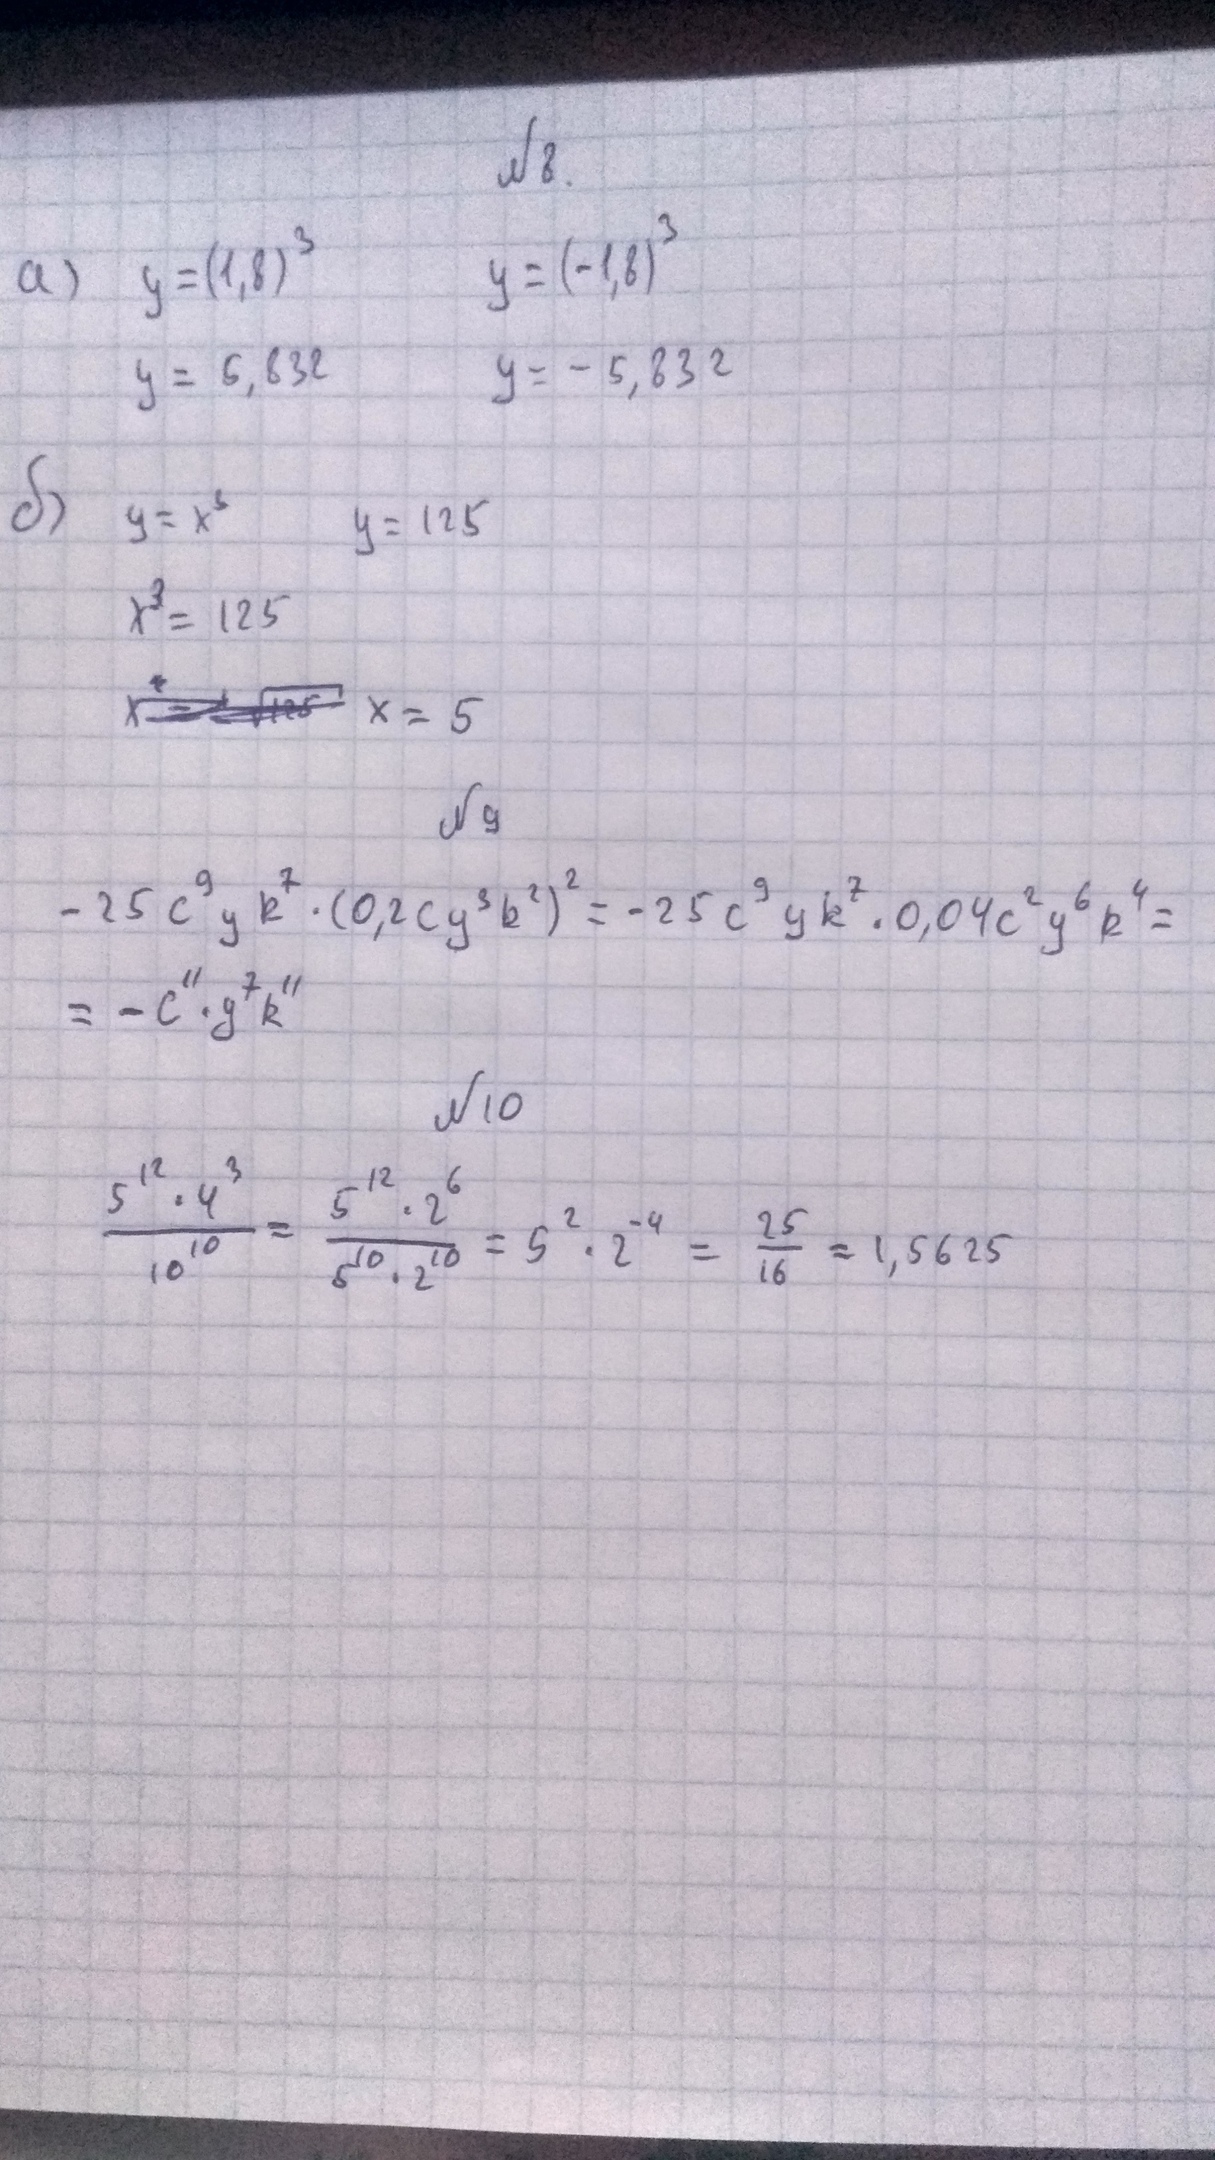 №8.
а) y = (1,8)³ y = (-1,8)³
y = 5,832 y = -5,832
б) y = x³ y = 125
x³ = 125
x = 5
№9
-25c⁹yk⁷·(0,2cy³k²)² = -25c⁹yk⁷·0,04c²y⁶k⁴ =
= -c¹¹·y⁷k¹¹
№10
5¹²·4³/10¹⁰ = 5¹²·2⁶/5¹⁰·2¹⁰ = 5²·2⁻⁴ = 25/16 = 1,5625